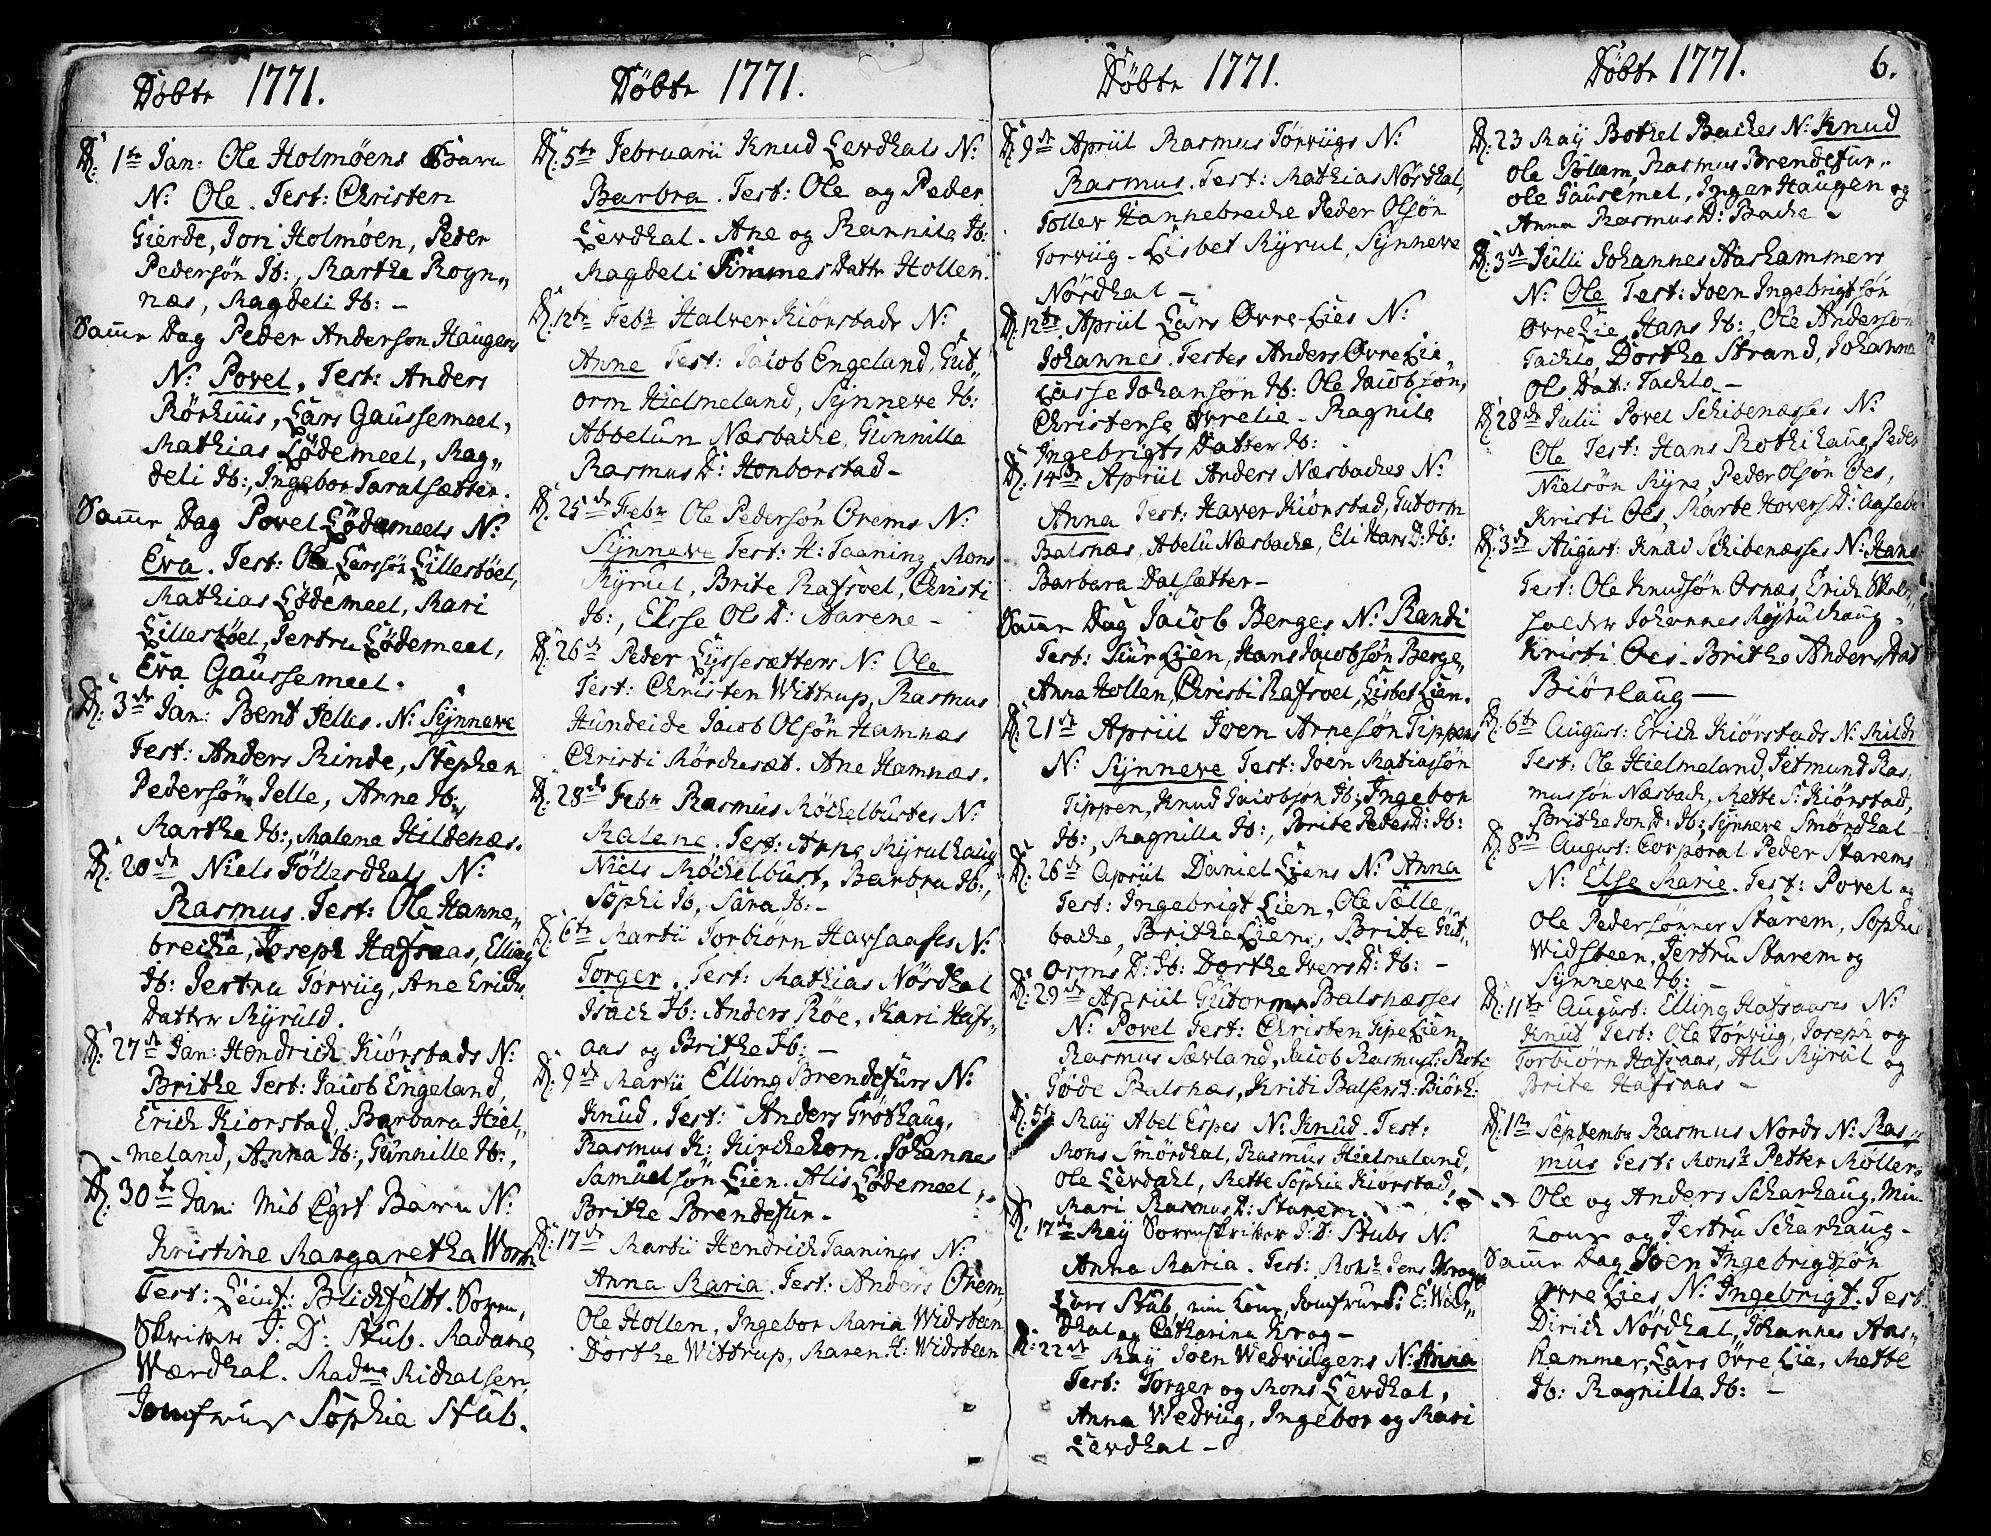 Döbte 1771.
D: 1te Jan: Ole Holmøens Barn
N: Ole. Test: Christen
Gierde, Jon Holmøen, Peder
Pedersøn Ib:, Marthe Rogn„
næs, Magdeli Ib: –
Samme Dag Peder Anderson Haugens
N: Povel. Test: Anders
Rörhuus, Lars Gaussemeel,
Mathias Lödemeel, Mag„
deli Ib:, Ingebor Taralsætter.
Samme Dag Povel Lödemeels N:
Eva. Test: Ole Larssön Lillestöel,
Mathias Lödemeel, Mari
Lillestöel, Jertru Lödemeel,
Eva Gaussemeel.
D: 3de Jan: Bent Jelles. N: Synneve
Test: Anders Rinde, Stephen
Pedersön Jelle, Anne Ib:
Marthe Ib:, Malene Hildenæs.
D: 20de Niels Föllesdhals N:
Rasmus. Test: Ole Hanne„
breche, Joseph Hafsaas, Elling
Ib: Jertru Törviig, Ane Erichs
Datter Myruld.
D: 27de Jan: Hendrich Kiörstads N:
Brithe Test: Jacob Engeland,
Erich Kiorstad, Barbara Hiel„
meland, Anna Ib:, Gunnille Ib:,
D: 30te Jan: Mit Eget Barn N:
Kristine Margaretha Worm
Test: Leint: Blichfeldt. Soren„
Skriver J: D: Stub. Madame
Wærdhal. Madme Michalsen,
Jomfrue Sophia Stub.
Döbte 1771.
D: 5te Februarii Knud Levdhals N:
Barbra. Test: Ole og Peder
Levdhal. Ane og Rannile Ib:
Magdeli Simmes Datter Hollen.
D: 12te Febr Halver Kiörstads N:
Anne Test: Jacob Engeland, Gut„
orm Hielmeland, Synneve Ib:
Abbelun Næsbache, Gunnille
Rasmus D: Honborstad –
D: 25de Febr Ole Pedersön Orems N:
Synneve Test: H: Taaning, Mons
Myrul, Brite Rafsvel, Christi
Ib:, Elsse Ols D: Aarene –
D: 26de Peder Lyssesætters N: Ole
Test: Christen Wittrup, Rasmus
Hundeide Jacob Olsön Hamnæs
Christi Mörchesæt. Ane Hamnæs.
D: 28de Febr Rasmus Möchelbustes N:
Malene. Test: Anne Myrulhaug
Niels Möchelbust, Barbra Ib:,
Sophi Ib, Sara Ib: –
D: 6te Martii Torbiörn Havsaasses N:
Torger. Test: Mathias Nördhal
Isach Ib: Anders Röe, Kari Hafs„
aas og Brithe Ib: –
D: 9de Martii Elling Brendefurs N:
Knud. Test: Anders Gröthaug,
Rasmus K: Kirchehorn. Johannes
Samuelsön Lien. Alis Lödemeel,
Brithe Brendefur –
D: 17de Martii Hendrich Taanings N:
Anna Maria. Test: Anders Orem,
Ole Hollen, Ingebor Maria Widsteen
Dorthe Wittrup, Maren H: Widsteen
Döbte 1771.
D: 9de Apriil Rasmus Törviigs N:
Rasmus. Test: Mathias Nördhal,
Toller Hannebreche Peder Olsön
Torviig – Lisbet Myrul, Synneve
Nördhal –
D: 12te Apriil Lars Øvre-Lies N:
Johannes. Testes Anders Øvre Lie,
Lasse Johansøn Ib: Ole Jacobsøn,
Christense Øvrelie – Ragnile
Ingebrigts Datter Ib:
D: 14de Apriil Anders Næsbaches N:
Anna Test: Haver Kiörstad, Gutorm
Balsnæs, Abelu Næsbache, Eli Hans D: Ib:
Barbara Dalsætter –
Samme Dag Jacob Berges N: Randi
Test: Siur Lien, Hans Jacobsön Berge„
Anna Hollen, Christi Rafsvel, Lisbet Lien.
D: 21de Apriil Joen Arnesön Tippens
N: Synneve Test: Joen Matiassön
Tippen, Knud Jacobson Ib: Ingebor
Ib:, Magnilla Ib:, Brite Peders D: Ib:
D: 26de Apriil Daniel Liens N: Anna
Test: Ingebrigt Lien, Ole Sælle„
bache, Brithe Lien, Brite Gut„
orms D: Ib: Dorthe Ivers D: Ib: –
D: 29de Apriil Gutorm Balsnæsses
N: Povel Test: Christen Tipe Lien,
Rasmus Særland, Jacob Rasmuss:
Göde Balsnæs, Kristi
D: 5te May Abel Espes N: Knud. Test:
Mons Smördhal, Rasmus Hielmeland,
Ole Levdahl, Mette Sophie Kiörstad,
Mari Rasmus D: Starem.
D: 17de May Sorenskriver J: D: Stubs N:
Anna Maria. Test: Monsr Jens Krogh
Lars Stub, min Kone, Jomfrue S: E: Wær„
dhal og Catharina Krog –
D: 22de May Joen Wedviigens N: Anna
Test: Torger og Mons Levdhal,
Anna Wedviig, Ingebor og Mari
Levdhal –
Döbte 1771. 6.
D: 23 May Bothel Baches N: Knud
Ole Rasmus Brendefur„
Ole Gausemel, Inger Haugen og
Anna Rasmus D: Bache –
D: 3de Julii Johannes Aashammers
N: Ole Test: Joen Ingebrigtsön
Øvre Lie, Hans Ib:, Ole Andersön
Tachlo, Dorthe Strand, Johanne
Ols Dat: Tachlo –
D: 28de Julii Povel Schibenæsses N:
Ole Test: Hans Rothihaug, Peder
Nielsön Myre, Peder Olsön Øes,
Kristi Øes, Marte Hovers D:
D: 3de August: Knud Schibenæsses N: Hans
Test: Ole Knudsön Osnæs, Erich
Johannes Myrulhaug –
Kristi Øes – Brithe Anders Dat
Biörlaug –
D: 6te August: Erich Kiörstads N: Mildr
Test: Ole Hielmeland, Jetmund Ras„
mussön Næsbach, Mette S: Kiörstad,
Brithe Jon D: Ib: Synneve Smördhal
D: 8de August: Corporal Peder Starems
N: Else Marie. Test: Povel og
Ole Pedersønner Starem, Sophie
Widsteen, Jertru Starem og
Synneve Ib: –
D: 11te August: Elling Hafsaases N:
Knud Test: Ole Törviig, Joseph og
Torbiörn Hafsaas, Alis Myrul og
Brite Hafsaas –
D: 1te September Rasmus Nords N: Ras„
mus Test: Monsr Petter Möller,
Ole og Anders Scharhaug. Min
Kone og Jertru Scharhaug –
Samme Dag Joen Ingebrigtsön
Øvre Lies N: Ingebrigt. Test.
Dirich Nördhal, Johannes Aas„
hammer, Lars Øvre Lie, Mette
Ib: Ragnilla Ib: –